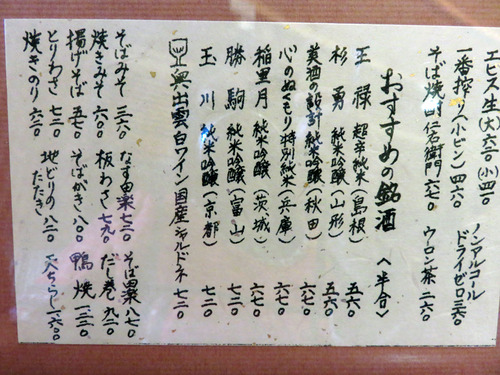 エビス生(大)六三〇(小)四〇
一番搾り(小ビン)四六〇
ノンアルコール
ドライゼロ三六〇
そば焼酎 仁右衛門 六七〇
ウーロン茶 二六〇
おすすめの銘酒〈半合〉
王禄 超辛純米(島根)五六〇
杉勇 純米吟醸(山形)五六〇
美酒の設計 純米吟醸(秋田)六七〇
心のぬくもり 特別純米(兵庫)六七〇
稲里月 純米吟醸(茨城)六七〇
勝駒 純米吟醸(富山)七二〇
玉川 純米吟醸(京都)七二〇
奥出雲白ワイン 国産シャルドネ 七二〇
そばみそ 三六〇
なす田楽 七三〇
そば田楽 八七〇
焼きみそ 六〇〇
板わさ 七九〇
だし巻 九二〇
揚げそば 五七〇
そばがき 八〇〇
鴨焼 一二三〇
とりわさ 七三〇
地どりの
たたき 八二〇
天ちらし 一六〇〇
焼きのり 六二〇